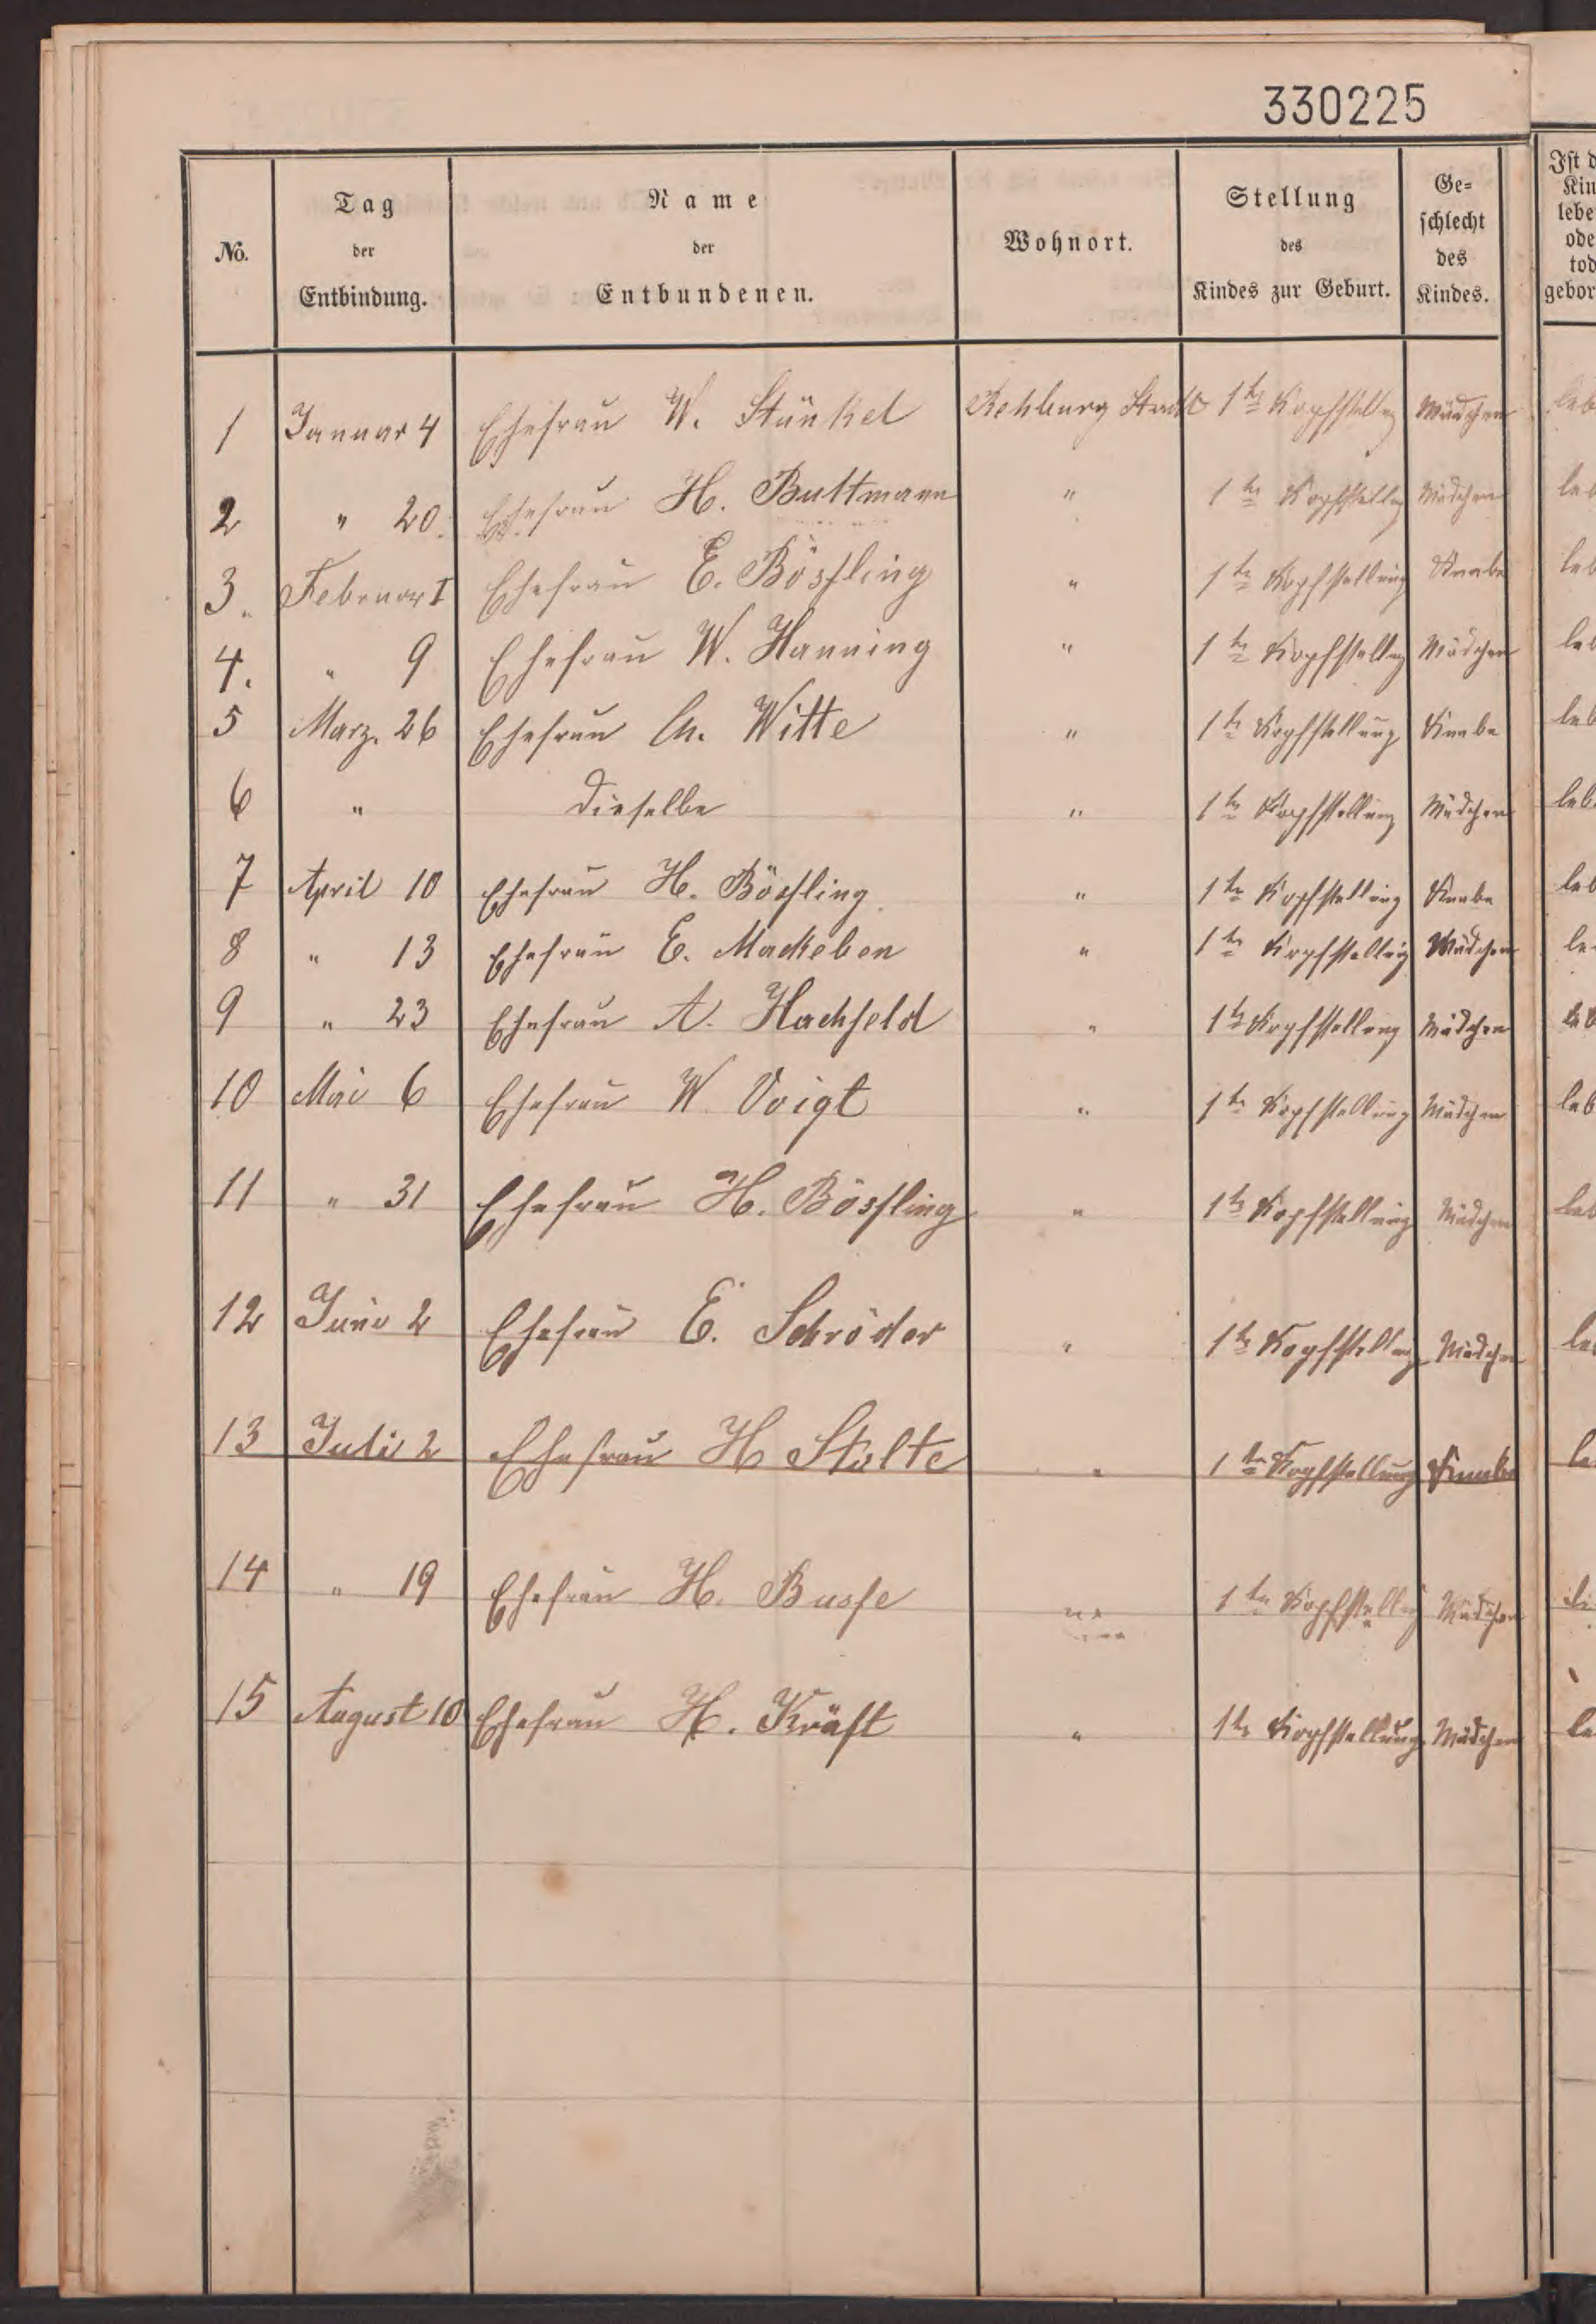 330225
No. Tag der Entbindung. Name der Entbundenen. Wohnort. Stellung des Kindes zur Geburt. Ge=schlecht des Kindes.
1 Januar 4 Ehefrau W. Stünkel Rehburg Stadt 1te Kopfstellg Mädchen leb
2 " 20. Ehefrau H. Buttmann " 1te Kopfstellg Mädchen leb
3. Februar I Ehefrau E. Bösling " 1te Kopfstellung Knabe leb
4. " 9 Ehefrau W. Hanning " 1te Kopfstellg Mädchen leb
5 Marz. 26 Ehefrau Ch. Witte " 1te Kopfstellung Knabe leb
6 " dieselbe " 1te Kopfstellung Mädchen leb
7 April 10 Ehefrau H. Bösling " 1te Kopfstellung Knabe leb
8 " 13 Ehefrau E. Mackeben " 1te Kopfstellg Mädchen le
9 " 23 Ehefrau A. Hachfeld " 1te Kopfstellung Mädchen leb
10 Mai 6 Ehefrau W Voigt " 1te Kopfstellung Mädchen leb
11 " 31 Ehefrau H. Bösling " 1te Kopfstellung Mädchen leb
12 Juni 2 Ehefrau E. Schröder " 1te Kopfstellg Mädchen le
13 Juli 2 Ehefrau H Stolte " 1te Kopfstellung Knabe le
14 " 19 Ehefrau H. Busse " 1te Kopfstellg Mädchen
15 August 10 Ehefrau H. Kräft " 1te Kopfstellung Mädchen le
Ist d
Kin
lebe
ode
tod
gebor